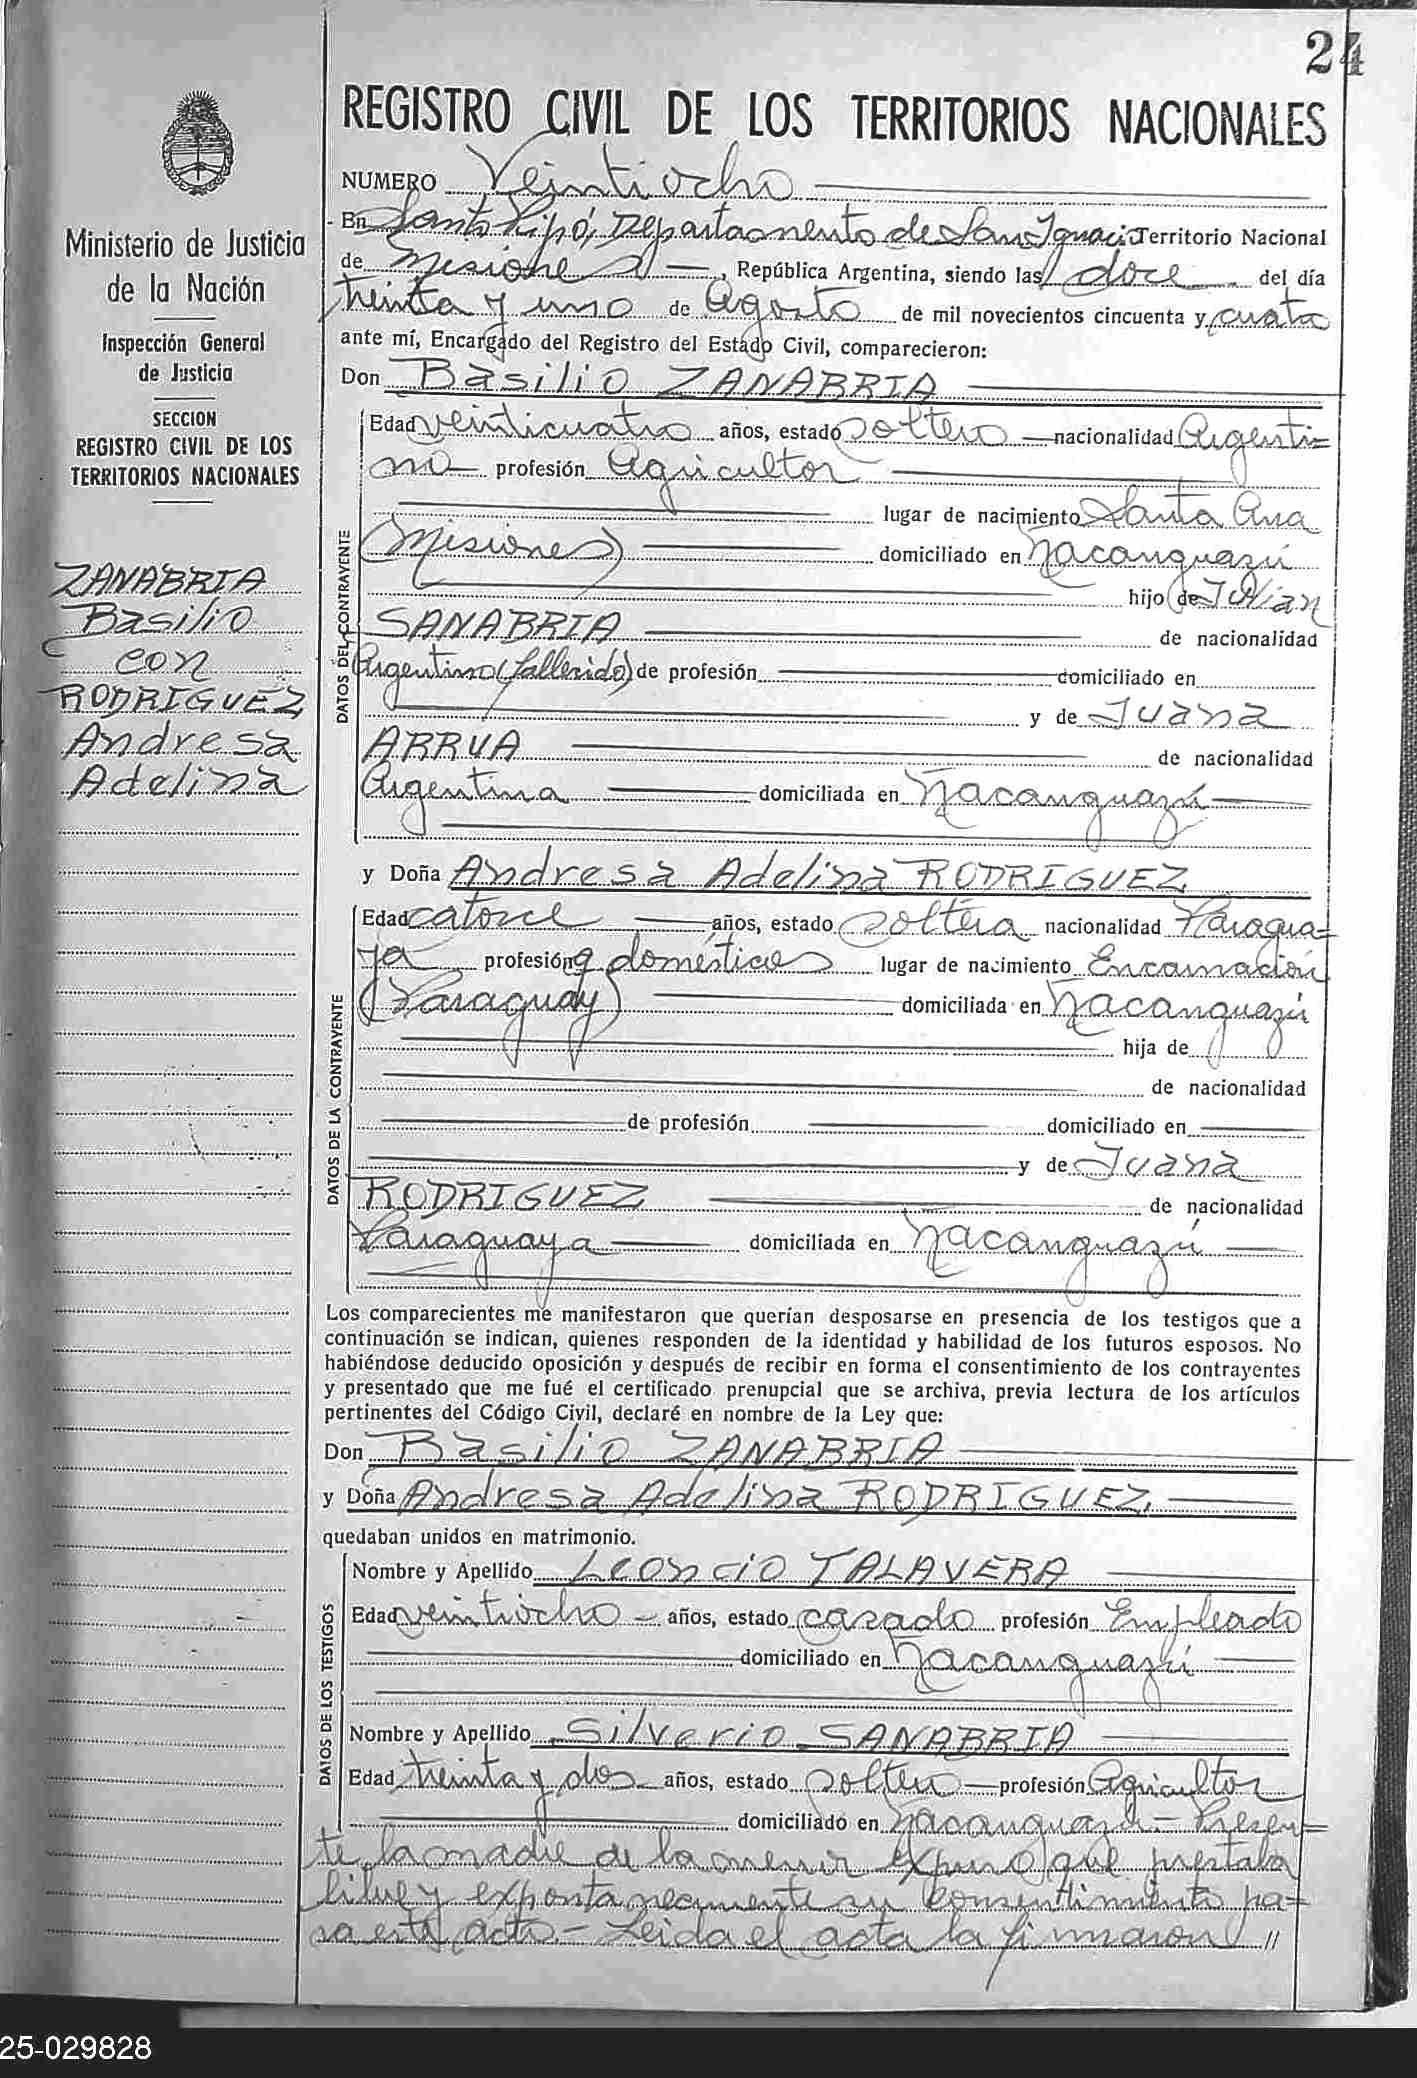 24
REGISTRO CIVIL DE LOS TERRITORIOS NACIONALES
Ministerio de Justicia
de la Nación
Inspección General
de Justicia
SECCION
REGISTRO CIVIL DE LOS
TERRITORIOS NACIONALES
ZANABRIA
Basilio
con
RODRIGUEZ
Andresa
Adelina
NUMERO Veintiocho
En Santo Pipó, Departamento de San Ignacio Territorio Nacional
de Misiones, República Argentina, siendo las doce del día
treinta y uno de Agosto de mil novecientos cincuenta y cuatro
ante mí, Encargado del Registro del Estado Civil, comparecieron:
Don Basilio ZANABRIA
DATOS DEL CONTRAYENTE
Edad veinticuatro años, estado soltero nacionalidad Argenti=
no profesión Agricultor
lugar de nacimiento Santa Ana
(Misiones) domiciliado en Ñacanguazú
hijo de Julian
SANABRIA de nacionalidad
Argentino (fallecido) de profesión domiciliado en
y de Juana
ARRUA de nacionalidad
Argentina domiciliada en Ñacanguazú
y Doña Andresa Adelina RODRIGUEZ
DATOS DE LA CONTRAYENTE
Edad catorce años, estado soltera nacionalidad Paragua=
ya profesión q. domésticos lugar de nacimiento Encarnación
(Paraguay) domiciliada en Ñacanguazú
hija de
de nacionalidad
de profesión domiciliado en
y de Juana
RODRIGUEZ de nacionalidad
Paraguaya domiciliada en Ñacanguazú
Los comparecientes me manifestaron que querían desposarse en presencia de los testigos que a
continuación se indican, quienes responden de la identidad y habilidad de los futuros esposos. No
habiéndose deducido oposición y después de recibir en forma el consentimiento de los contrayentes
y presentado que me fué el certificado prenupcial que se archiva, previa lectura de los artículos
pertinentes del Código Civil, declaré en nombre de la Ley que:
Don Basilio ZANABRIA
y Doña Andresa Adelina RODRIGUEZ.
quedaban unidos en matrimonio.
DATOS DE LOS TESTIGOS
Nombre y Apellido Leoncio TALAVERA
Edad veintiocho años, estado casado profesión Empleado
domiciliado en Ñacanguazú
Nombre y Apellido Silverio SANABRIA
Edad treinta y dos años, estado soltero profesión Agricultor
domiciliado en Ñacanguazú.- Presen=
te la madre de la menor expuso que prestaba
libre y expontaneamente su consentimiento pa=
ra este acto - Leida el acta la firmaron //
25-029828